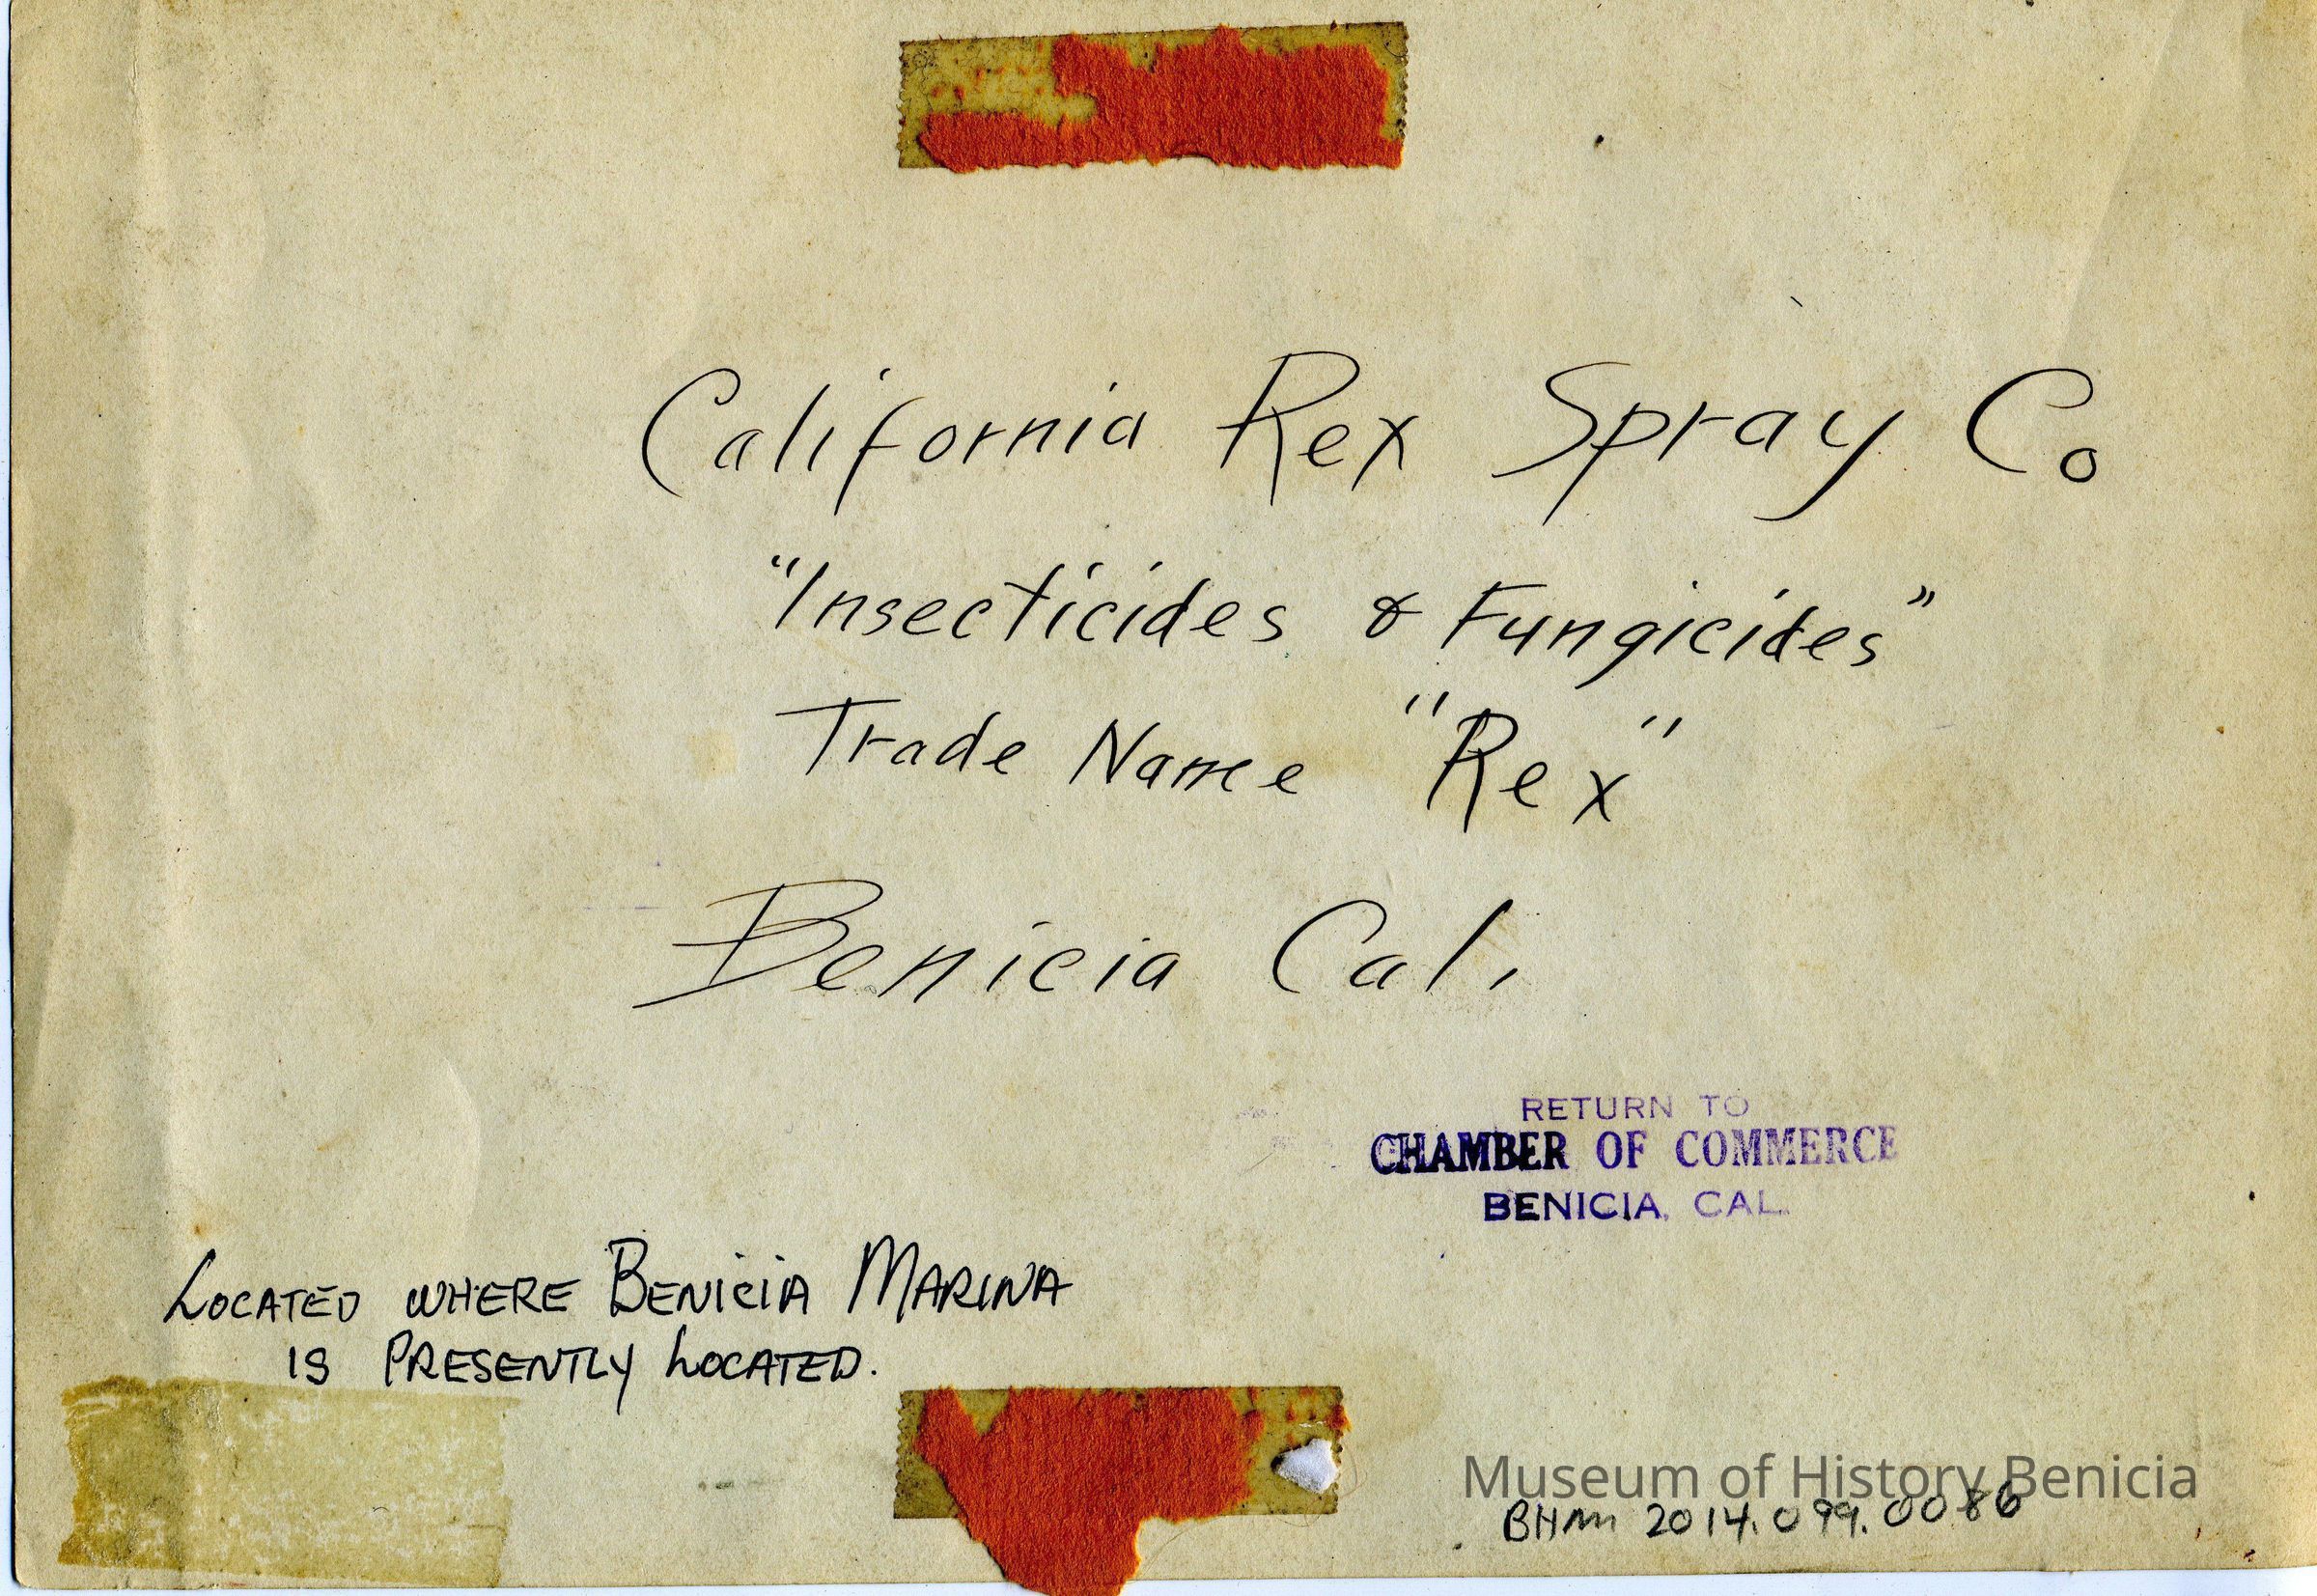 California Rex Spray Co
"Insecticides & Fungicides"
Trade Name "Rex"
Benicia Cal.
RETURN TO
CHAMBER OF COMMERCE
BENICIA, CAL.
LOCATED WHERE BENICIA MARINA
IS PRESENTLY LOCATED.
Museum of History Benicia
BHM 2014.099.0086